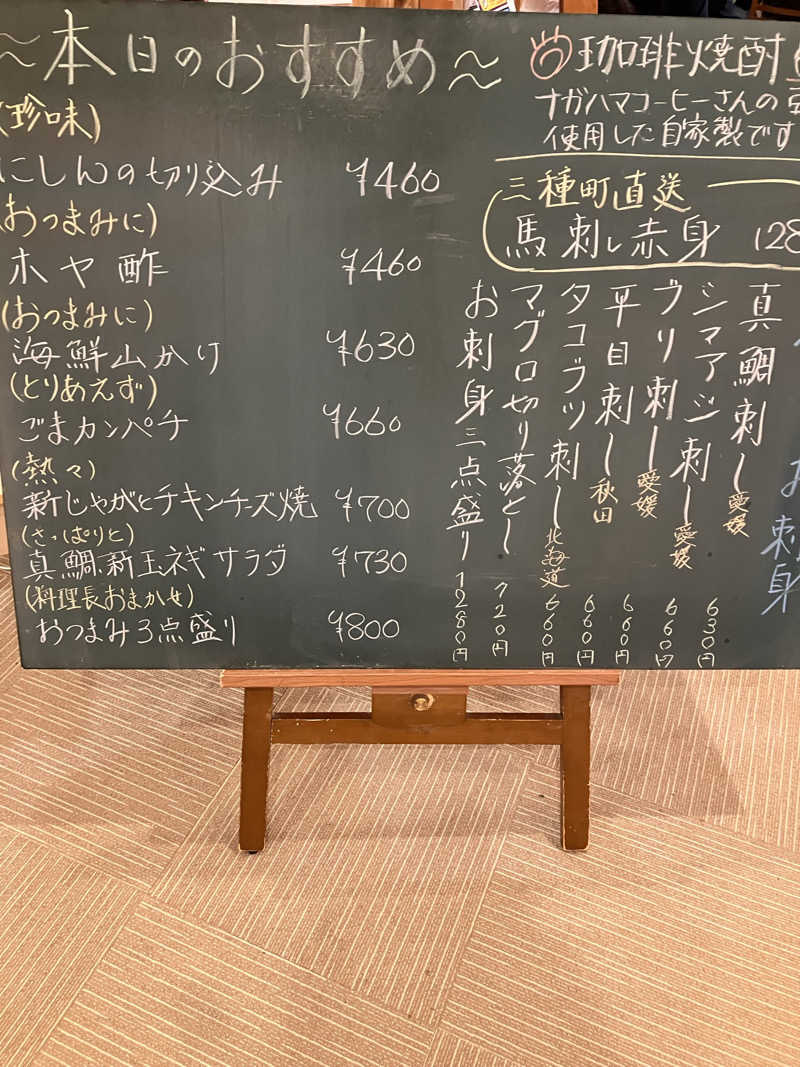 ～本日のおすすめ～
(珍味)
にしんの切り込み ¥460
(おつまみに)
ホヤ酢 ¥460
(おつまみに)
海鮮山かけ ¥630
(とりあえず)
ごまカンパチ ¥660
(熱々)
新じゃがとチキンチーズ焼 ¥700
(さっぱりと)
真鯛、新玉ネギサラダ ¥730
(料理長おまかせ)
おつまみ3点盛り ¥800
珈琲焼酎
ナガハマコーヒーさんの豆
使用した自家製です
三種町直送
馬刺し赤身 128
真鯛刺し 愛媛 630円
シマアジ刺し 愛媛 660円
ブリ刺し 愛媛 660円
平目刺し 秋田 660円
タコブツ刺し 北海道 660円
マグロ切り落とし 720円
お刺身三点盛り 1280円
お刺身